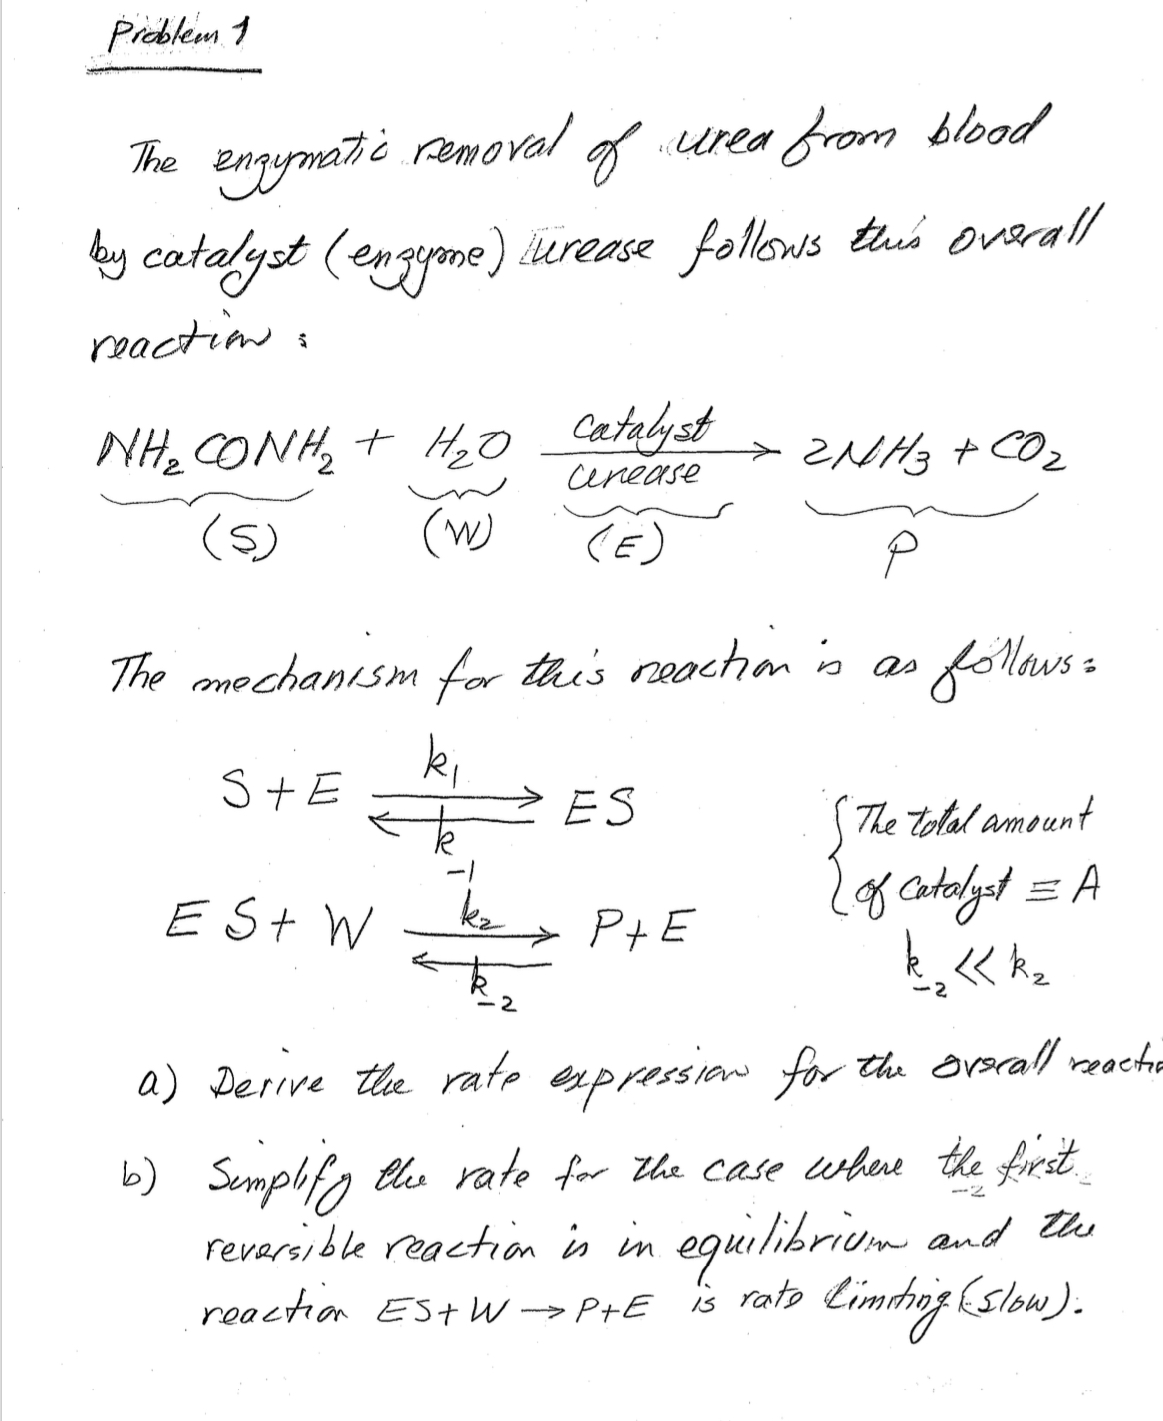 Problem 1
The enzymatic removal of urea from blood
by catalyst (enzyme) urease follows this overall
reaction :
NH₂CONH₂ + H₂O catalyst urease → 2NH₃ + CO₂
(S) (W) (E) P
The mechanism for this reaction is as follows:
S + E ⇌ ES k₁ k₋₁
{ The total amount
of catalyst ≡ A
ES + W ⇌ P + E k₂ k₋₂
k₋₂ << k₂
a) Derive the rate expression for the overall reactio
b) Simplify the rate for the case where the first
reversible reaction is in equilibrium and the
reaction ES + W → P + E is rate limiting (slow).